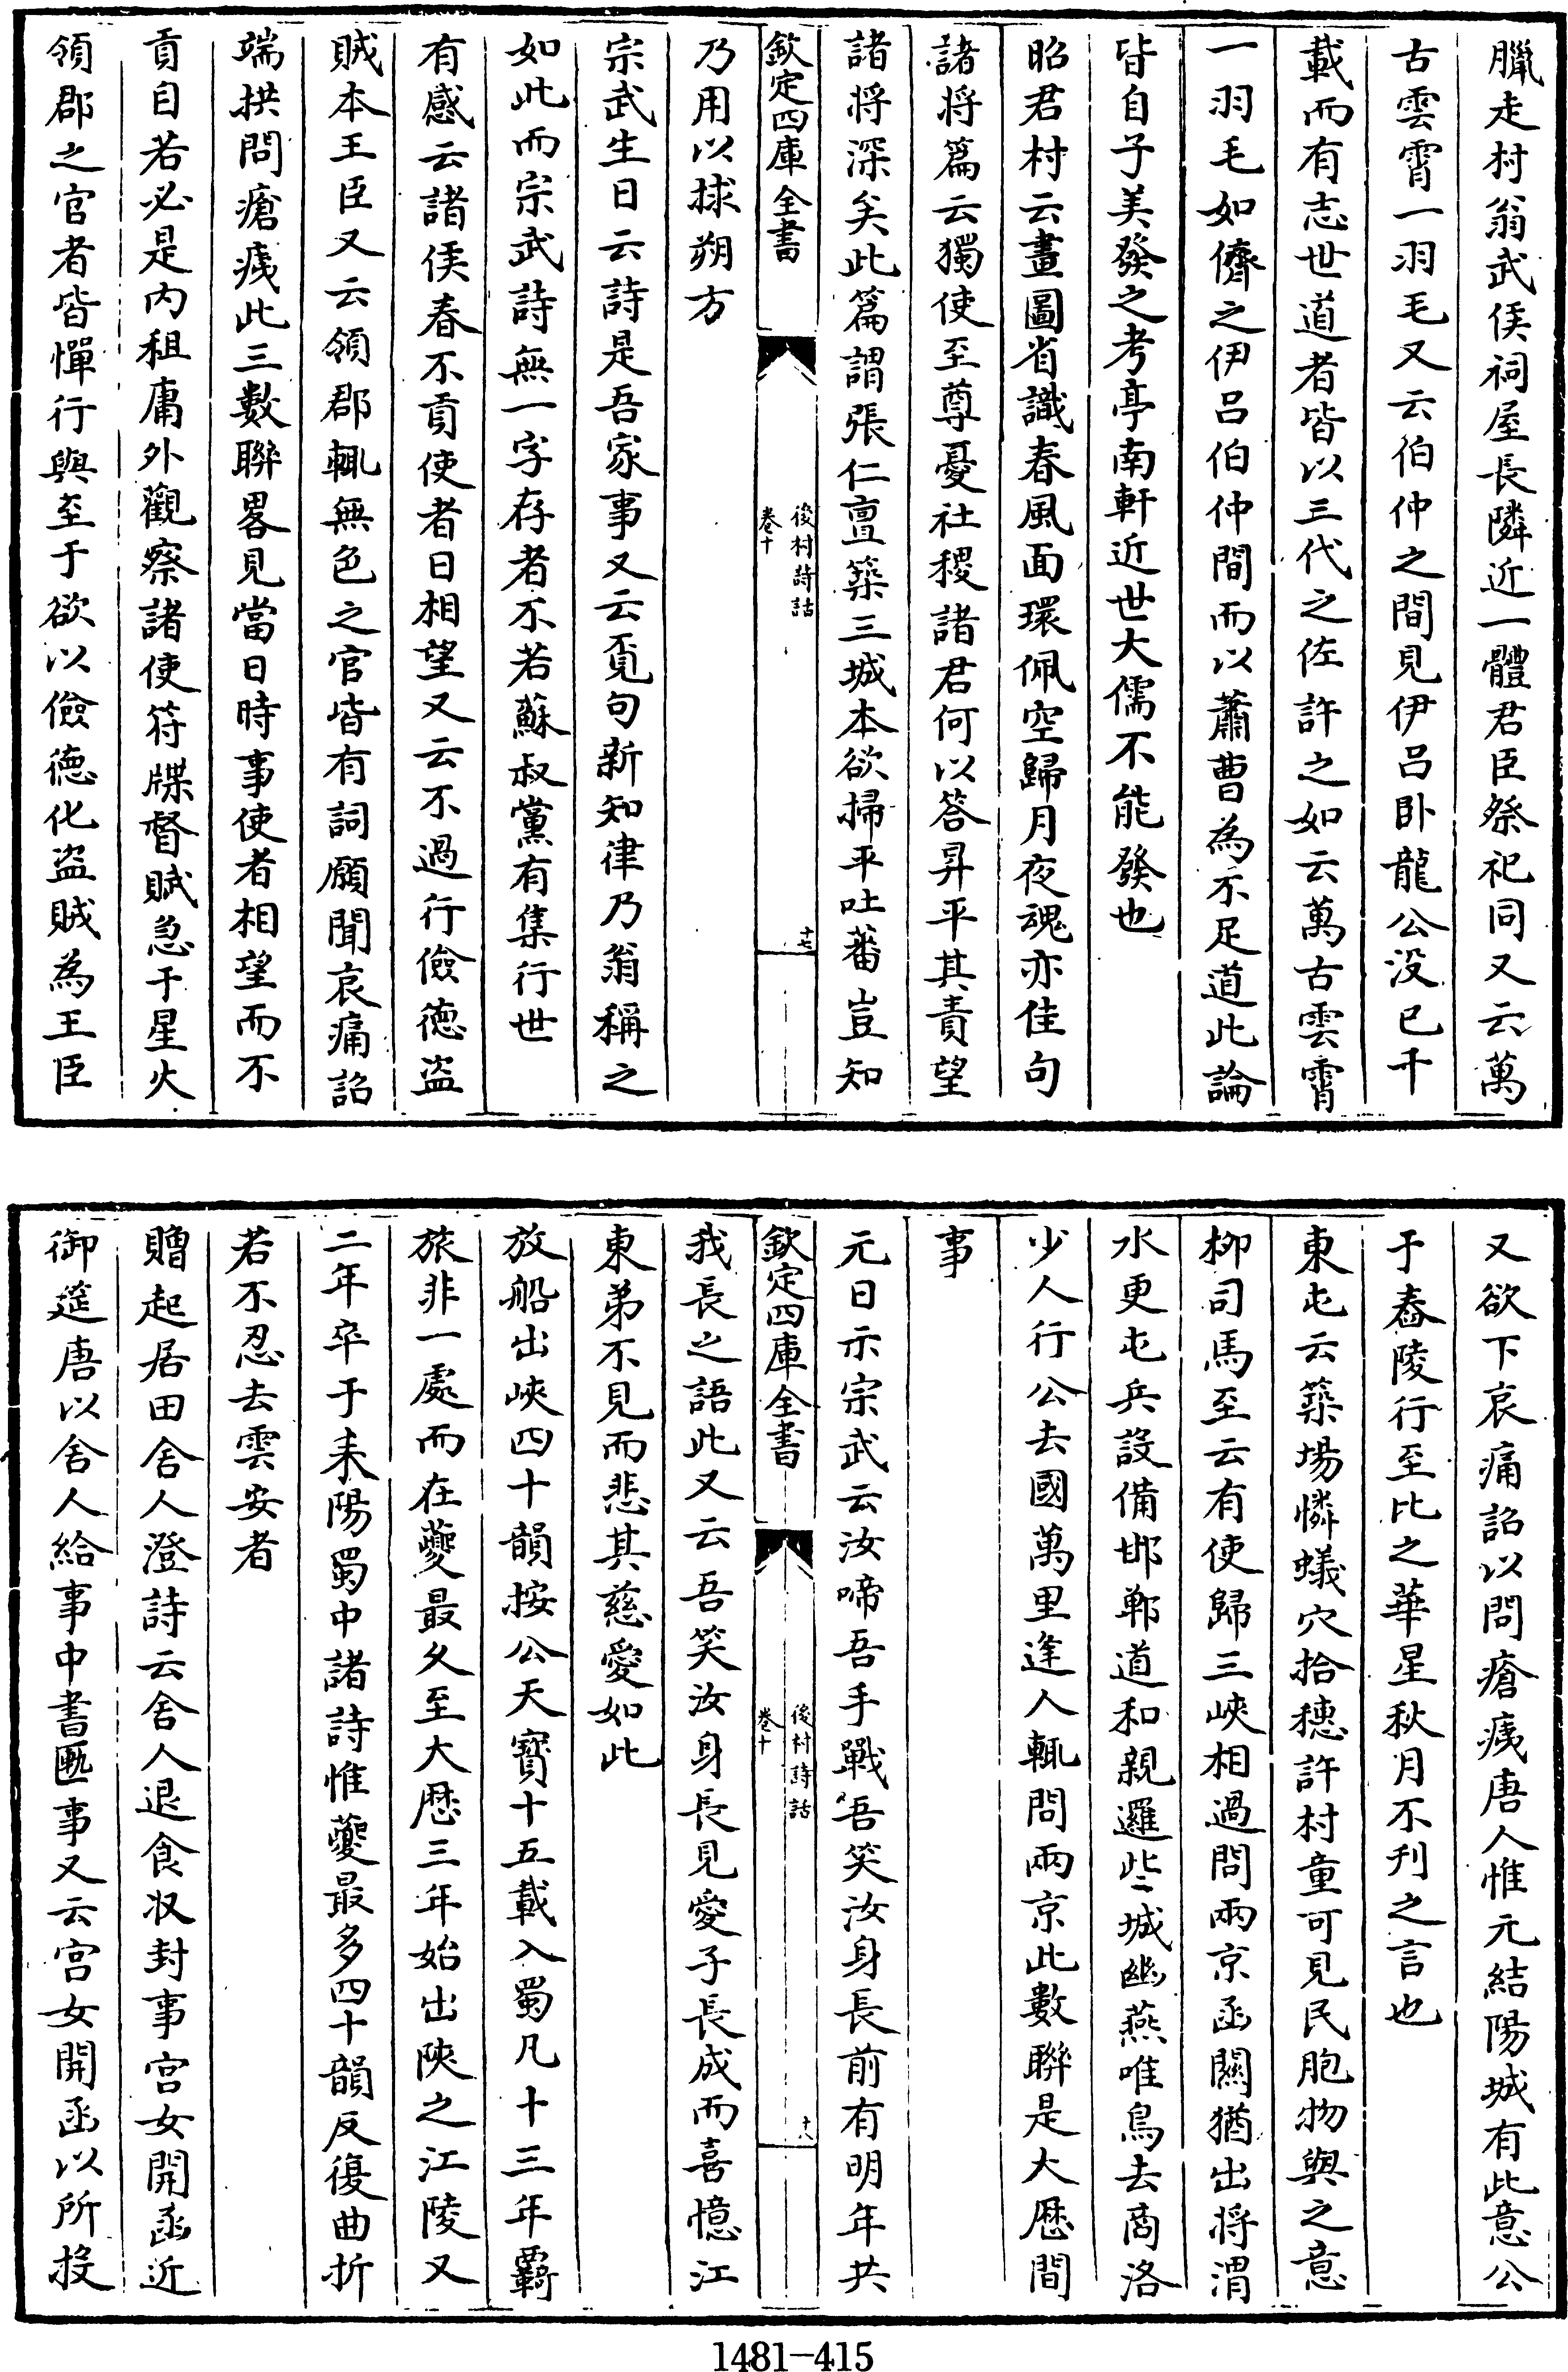 臘走村翁武侯祠屋長隣近一體君臣祭祀同又云萬
古雲霄一羽毛又云伯仲之間見伊吕卧龍公没已千
載而有志世道者皆以三代之佐許之如云萬古雲霄
一羽毛如儕之伊吕伯仲間而以蕭曹為不足道此論
皆自子美發之考亭南軒近世大儒不能發也
昭君村云畫圖省識春風面環佩空歸月夜魂亦佳句
諸將篇云獨使至尊憂社稷諸君何以答昇平其責望
諸將深矣此篇謂張仁亶築三城本欲掃平吐蕃豈知
欽定四庫全書
後村詩話
卷十
十七
乃用以捄朔方
宗武生日云詩是吾家事又云覔句新知律乃翁稱之
如此而宗武詩無一字存者不若蘇叔黨有集行世
有感云諸侯春不貢使者日相望又云不過行儉徳盗
賊本王臣又云領郡輒無色之官皆有詞願聞哀痛詔
端拱問瘡痍此三數聯畧見當日時事使者相望而不
貢自若必是内租庸外觀察諸使符牒督賦急于星火
領郡之官者皆憚行與至于欲以儉徳化盗賊為王臣
又欲下哀痛詔以問瘡痍唐人惟元結陽城有此意公
于舂陵行至比之華星秋月不刋之言也
東屯云築場憐蟻穴拾穗許村童可見民胞物與之意
柳司馬至云有使歸三峽相過問兩京函關猶出將渭
水更屯兵設備邯鄲道和親邏些城幽燕唯鳥去商洛
少人行公去國萬里逢人輒問兩京此數聯是大厯間
事
元日示宗武云汝啼吾手戰吾笑汝身長前有明年共
欽定四庫全書
後村詩話
卷十
十八
我長之語此又云吾笑汝身長見愛子長成而喜憶江
東弟不見而悲其慈愛如此
放船出峽四十韻按公天寳十五載入蜀凡十三年覊
旅非一處而在夔最久至大厯三年始出陜之江陵又
二年卒于耒陽蜀中諸詩惟夔最多四十韻反復曲折
若不忍去雲安者
贈起居田舍人澄詩云舍人退食収封事宫女開函近
御筵唐以舍人給事中書匭事又云宫女開函以所投
1481-415